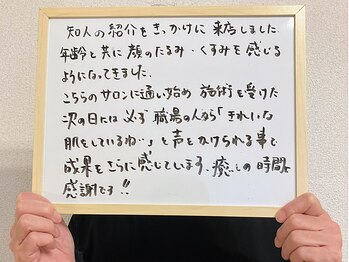 知人の紹介をきっかけに来店しました.
年齢と共に顔のたるみ・くすみを感じる
ようになってきました.
こちらのサロンに通い始め 施術を受けた
次の日には必ず職場の人から「きれいな
肌をしているね…」と声をかけられる事で
成果をさらに感じています、癒しの時間に
感謝です!!